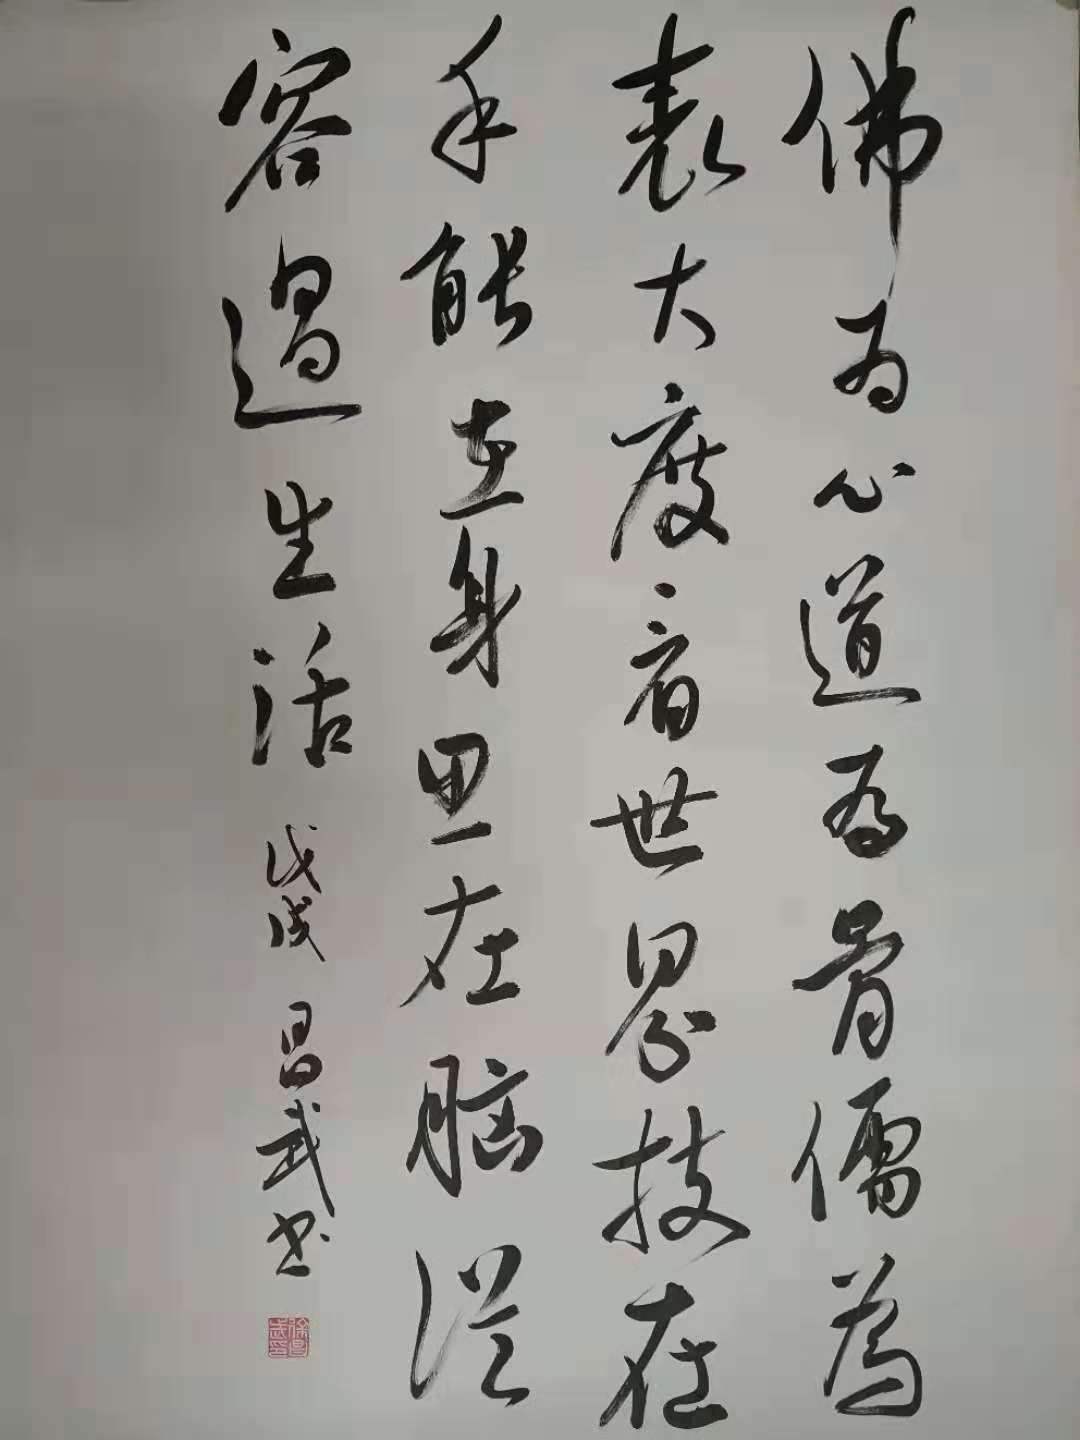 佛为心道为骨儒为
表大度看世界技在
手能在身思在脑从
容过生活
戊戌昌武书